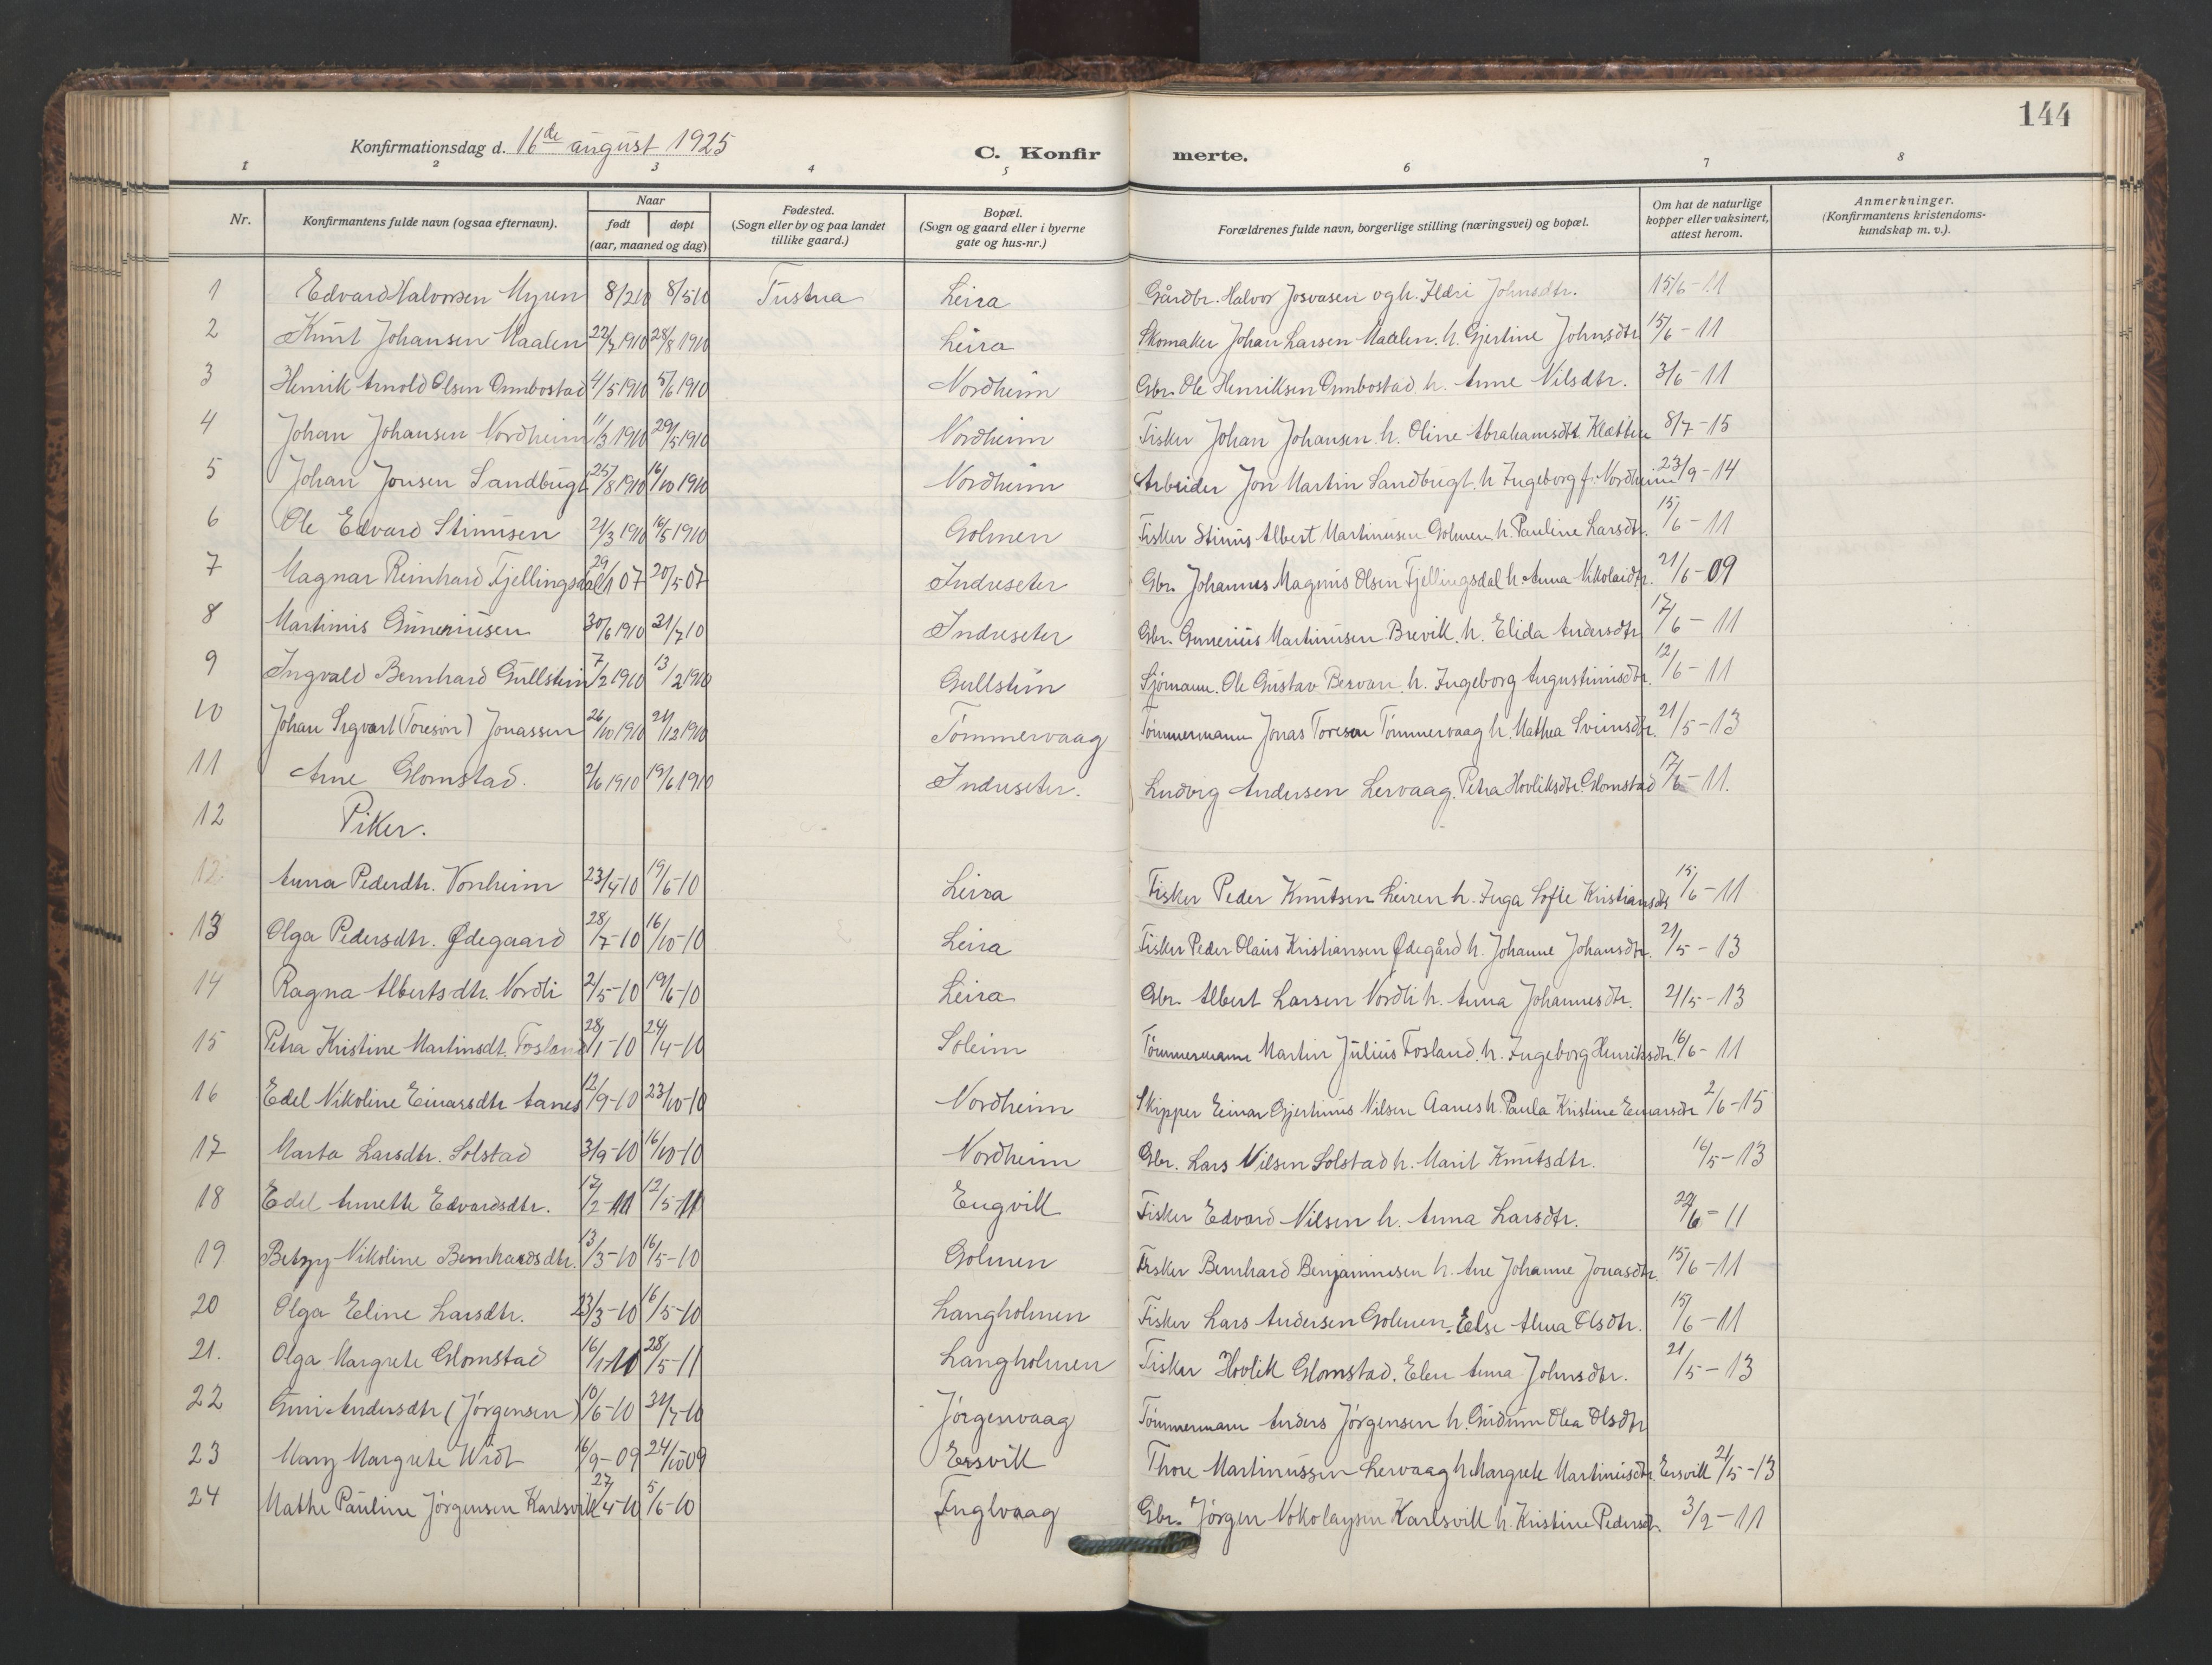 144
Konfirmationsdag d. 16de august 1925
C. Konfirmerte.
1 2 3 4 5 6 7 8
Nr. Konfirmantens fulde navn (ogsaa efternavn). Naar født døpt (aar, maaned og dag) Fødested. (Sogn eller by og paa landet tillike gaard.) Bopæl. (Sogn og gaard eller i byerne gate og hus-nr.) Forældrenes fulde navn, borgerlige stilling (næringsvei) og bopæl. Om hat de naturlige kopper eller vaksinert, attest herom. Anmerkninger. (Konfirmantens kristendoms-kundskap m. v.).
1 Edvard Halvorsen Myren 8/2 10 8/5 10 Tustna Leira Gårdbr. Halvor Josvasen og h. Ildri Johnsdtr. 15/6-11
2 Knut Johansen Maalen 22/7 1910 28/8 1910 Leira Skomaker Johan Larsen Maalen. h. Gjertine Johnsdtr 15/6-11
3 Henrik Arnold Olsen Ormbostad 4/5 1910 5/6 1910 Nordheim Gbr. Ole Henriksen Ormbostad h. Anne Nilsdtr. 3/6-11
4 Johan Johansen Nordheim 11/3 1910 29/5 1910 Nordheim Fisker Johan Johansen h. Oline Abrahamsdtt. Kletten 8/7-15
5 Johan Jonsen Sandbugt 25/8 1910 16/10 1910 Nordheim Arbeider Jon Martin Sandbugt. h Ingeborg f. Nordheim 23/9-14
6 Ole Edvard Stinusen 21/3 1910 16/5 1910 Golmen Fisker Stinus Albert Martinusen Golmen h. Pauline Larsdtr. 15/6-11
7 Magnar Reinhard Fjellingsdal 29/1 07 20/5 07 Indreseter Gbr. Johannes Magnus Olsen Fjellingsdal h Anna Nikolaidtr. 21/6-09
8 Martinus Gunneriusen 30/6 1910 31/7 10 Indreseter Gbr. Gunerius Martinusen Brevik. h. Elida Andersdtr 17/6-11
9 Ingvald Bernhard Gullstein 7/2 1910 13/2 1910 Gullstein Sjømann. Ole Gustav Bervan h. Ingeborg Augustinusdtr. 12/6-11
10 Johan Sigvart (Toresøn) Jonassen 26/10 1910 21/12 1910 Tømmervaag Tømmermann Jonas Toresen Tømmervaag h. Mathea Sveinsdtr. 21/5-13
11 Arne Glomstad. 2/6 1910 19/6 1910 Indreseter. Ludvig Andersen Lervaag. Petra Hovliksdtr. Glomstad 17/6-11.
12 Piker.
12. Anna Pedersdtr. Vonheim 23/4-10 19/6-10 Leira Fisker Peder Knutsen Leiren h. Inga Sofie Kristiansdtr 15/6-11
13 Olga Pedersdtr. Ødegaard 28/7-10 16/10-10 Leira Fisker Peder Olaus Kristiansen Ødegård h. Johanne Johansdtr. 21/5-13
14 Ragna Albertsdtr. Nordli 2/5-10 19/6-10 Leira Gbr. Albert Larsen Nordli h. Anna Johannesdtr. 21/5-13
15 Petra Kristine Martinsdt. Fosland 28/1-10 24/4-10 Soleim Tømmermann Martin Julius Fosland. h. Ingeborg Henriksdtr. 16/6-11
16 Edel Nikoline Einarsdtr Aanes 12/9-10 23/10-10 Nordheim Skipper Einar Gjertinus Nilsen Aanes h. Paula Kristine Einarsdtr 2/6-15
17 Marta Larsdtr. Solstad 3/9-10 16/10-10 Nordheim Gbr. Lars Nilsen Solstad h. Marit Knutsdtr. 16/5-13
18 Edel Annette Edvardsdtr. 12/2-11 12/5-11 Engvik Fisker Edvard Nilsen h. Anna Larsdtr. 22/6-11
19 Betzy Nikoline Bernhardsdtr. 13/3-10 16/5-10 Golmen Fisker Bernhard Benjaminsen h. Ane Johanne Jonasdtr. 15/6-11
20 Olga Eline Larsdtr. 23/3-10 16/5-10 Langholmen Fisker Lars Andersen Golmen. Else Alma Olsdtr. 15/6-11
21. Olga Margrete Glomstad 16/1-11 28/5-11 Langholmen Fisker Hovlik Glomstad. Elen Anna Johnsdtr. 21/5-13
22 Guri Andersdtr (Jørgensen) 10/6-10 31/7-10 Jørgenvaag Tømmermann Anders Jørgensen h. Gudrun Olea Olsdtr
23 Mary Margrete Widt 16/9-09 24/10 09 Ersvik Thore Martinussen Lervaag h Margrete Martinusdtr. Ersvik 21/5-13
24 Mathe Pauline Jørgensen Karlsvik 27/4-10 5/6-10 Fuglvaag Gbr. Jørgen Nokolaysen Karlsvik h. Kristine Pedersdt. 3/2-11